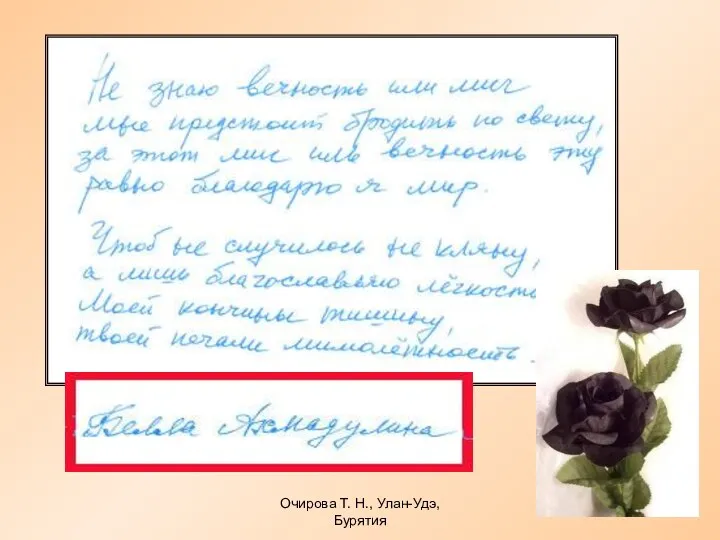 Не знаю вечность или миг
мне предстоит бродить по свету,
за этот миг иль вечность эту
равно благодарю я мир.
Чтоб не случилось не кляну,
а лишь благославляю лёгкость
Моей кончины тишину,
твоей печали мимолётность.
Белла Ахмадулина
Очирова Т. Н., Улан-Удэ,
Бурятия